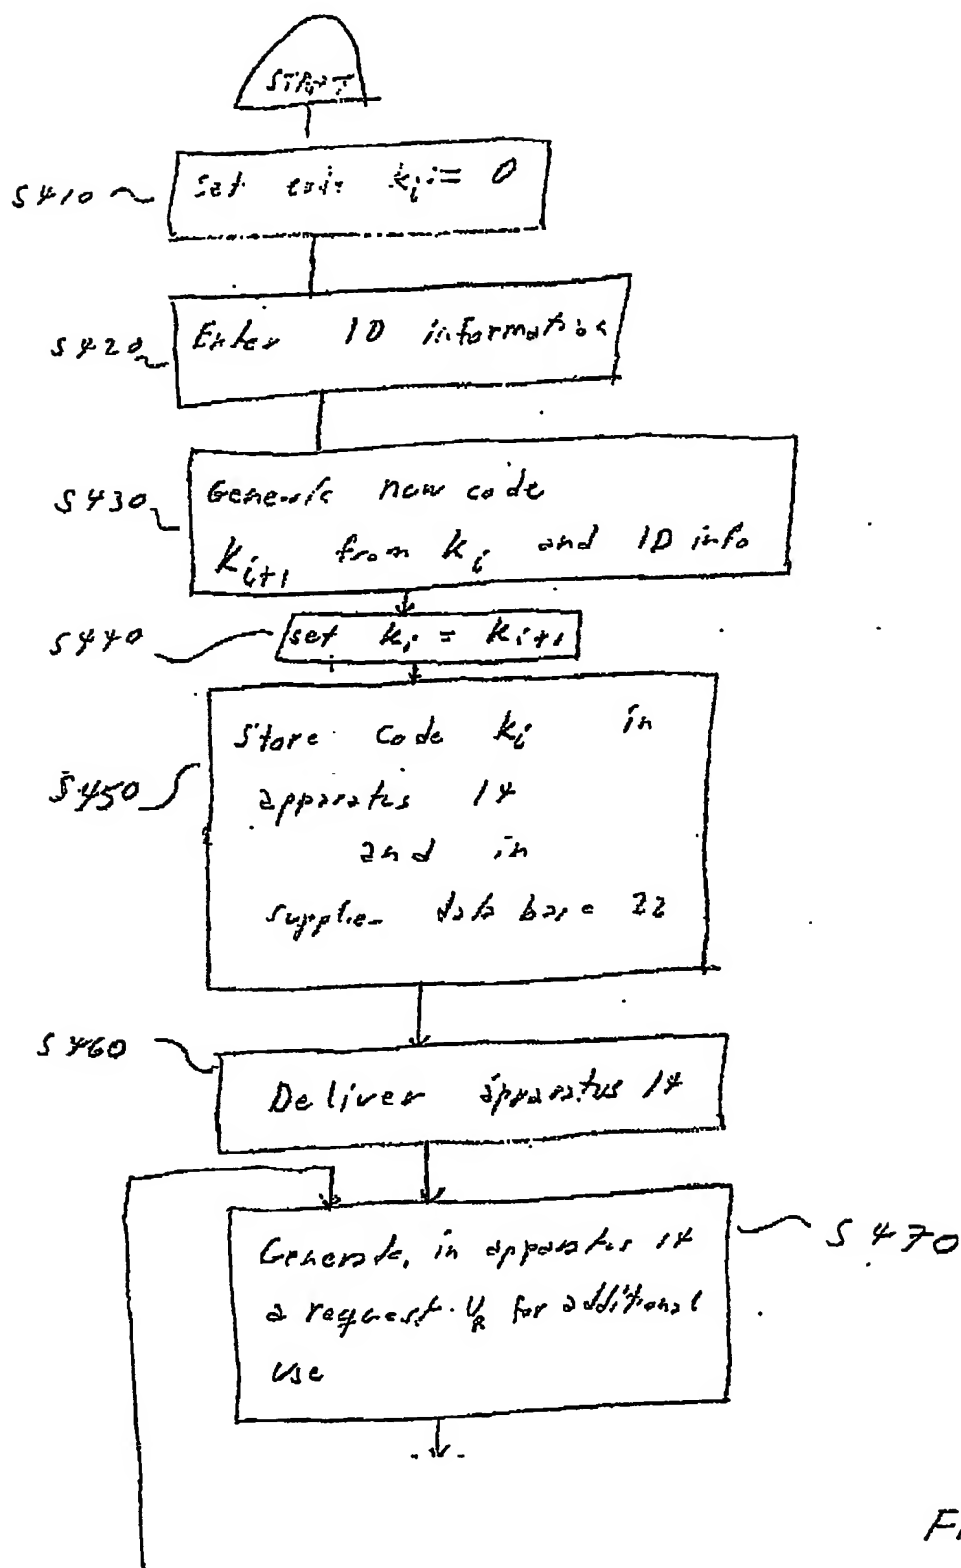 START
S410
Set code ki = 0
S420
Enter ID information
S430
Generate new code
Ki+1 from Ki and ID info
S440
set ki = Ki+1
S450
Store code ki in
apparatus 14
and in
supplier data base 22
S460
Deliver apparatus 14
S470
Generate, in apparatus 14
a request UR for additional
use